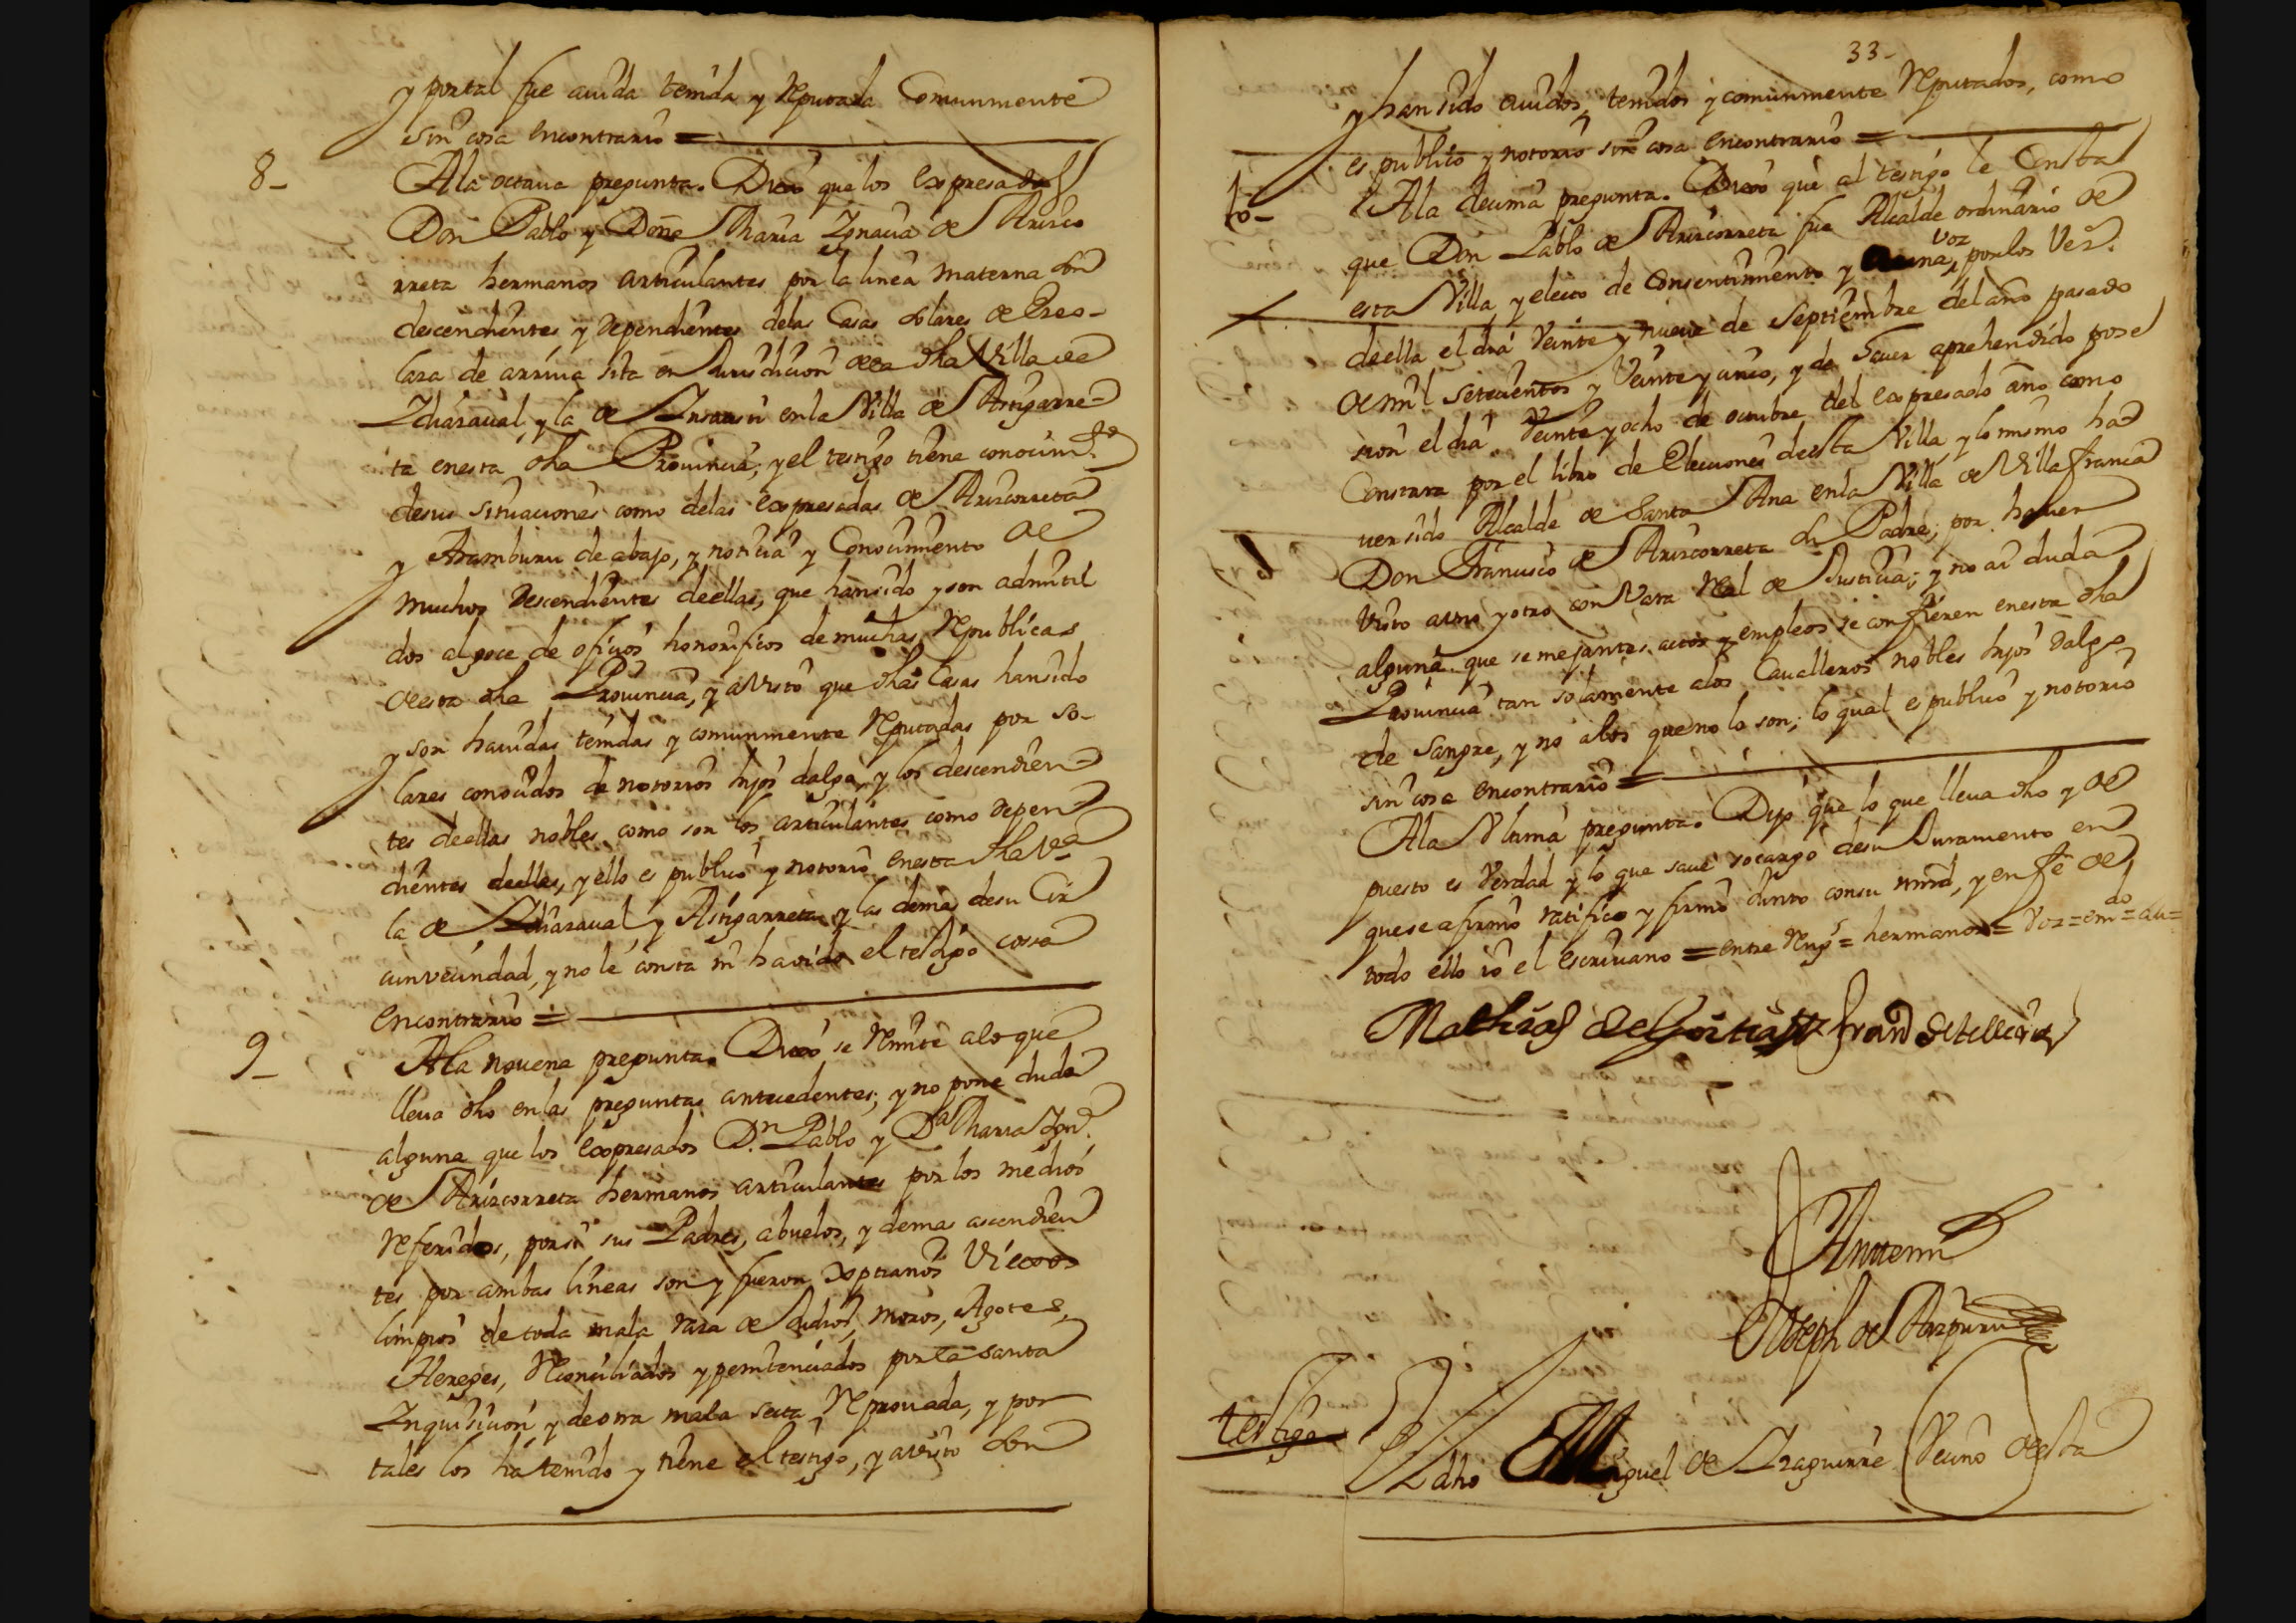 y por tal fue auida tenida y Reputada Comunmente
sin cosa encontrario =
8- A la octaua pregunta. Dixo que los expresados
Don Pablo y Doña Maria Ignacia de Arizco
rreta hermanos articulantes por la linea materna son
descendientes y dependientes delas Casas solares de
lara de arriua sita en Jurisdicion dela dha Villa de
Ydiazaual, y la de Insausti enla Villa de Astigarre-
ta enesta dha Prouincia, y el testigo tiene conocim.to
desus situaciones como delas expresadas de Arizcorreta
y Aramburu de abajo, y noticia y Conocimiento de
muchos descendientes deellas, que hansido y son admiti
dos al goce de oficios honorificos de muchas Republicas
deesta dha Prouincia, y a visto que dhas Casas hansido
y son hauidas tenidas y comunmente Reputadas por so-
lares conocidos de notorios hijos dalgo, y los descendien-
tes deellas nobles, como son los articulantes como depen-
dientes deellas, y ello es publico y notorio enesta dha Vi
la de Ydiazaual y Astigarreta y las demas desu Cir
cunvecindad, y no le consta ni ha oido el testigo cossa
encontrario =
9- A la nouena pregunta. Dixo se Rimite alo que
lleua dho en las preguntas antecedentes; y no pone duda
alguna que los expresados D.n Pablo y D.a Maria Ign.a
de Arizcorreta hermanos articulantes por los medios
Referidos, por si sus Padres, abuelos, y demas ascendien
tes por ambas lineas son y fueron Xptianos Viexos
limpios de toda mala raza de Judios, moros, Agotes,
Hereges, Reconciliados y penitenciados por la santa
Inquisicion y de otra mala secta Reprouada, y por
tales los ha tenido y tiene el testigo, y a visto son
33-
y han sido auidos, tenidos y comunmente Reputados, como
es publico y notorio sin cosa encontrario =
10- A la decima pregunta. Dixo que al testigo le Consta
que Don Pablo de Arizcorreta fue Alcalde ordinario de
esta Villa, y electo de Consentimiento y una voz, por los Vez.s
deella el dia Veinte y nueue de Septiembre del año pasado
de mil setecientos y Veinte y cinco, y de hauer aprehendido pose
sion el dia Veinte y ocho de octubre del expresado año como
Constara por el libro de Elecciones deesta Villa, y lo mismo ha
uer sido Alcalde de Santa Ana enla Villa de Villafranca
Don Francisco de Arizcorreta su Padre, por hauer
visto a uno y otro con Vara Real de Justicia; y no ai duda
alguna que semejantes actos y empleos se confieren enesta dha
Prouincia tan solamente alos Caualleros nobles hijos dalgo
de sangre, y no alos que no lo son; lo qual es publico y notorio
sin cosa encontrario =
A la Vltima pregunta. Dijo que lo que lleua dho y de
puesto es Verdad y lo que saue socargo desu Juramento en
que se afirmo ratifico y firmo Junto consu mrd, y en fe de
todo ello io el escriuano = entre Reng.s = hermanos = Voz = em.do = au=
Mathias de Goitia
Ante mi
Joseph de
testigo El dho Miguel de Yzaguirre Vecino deesta